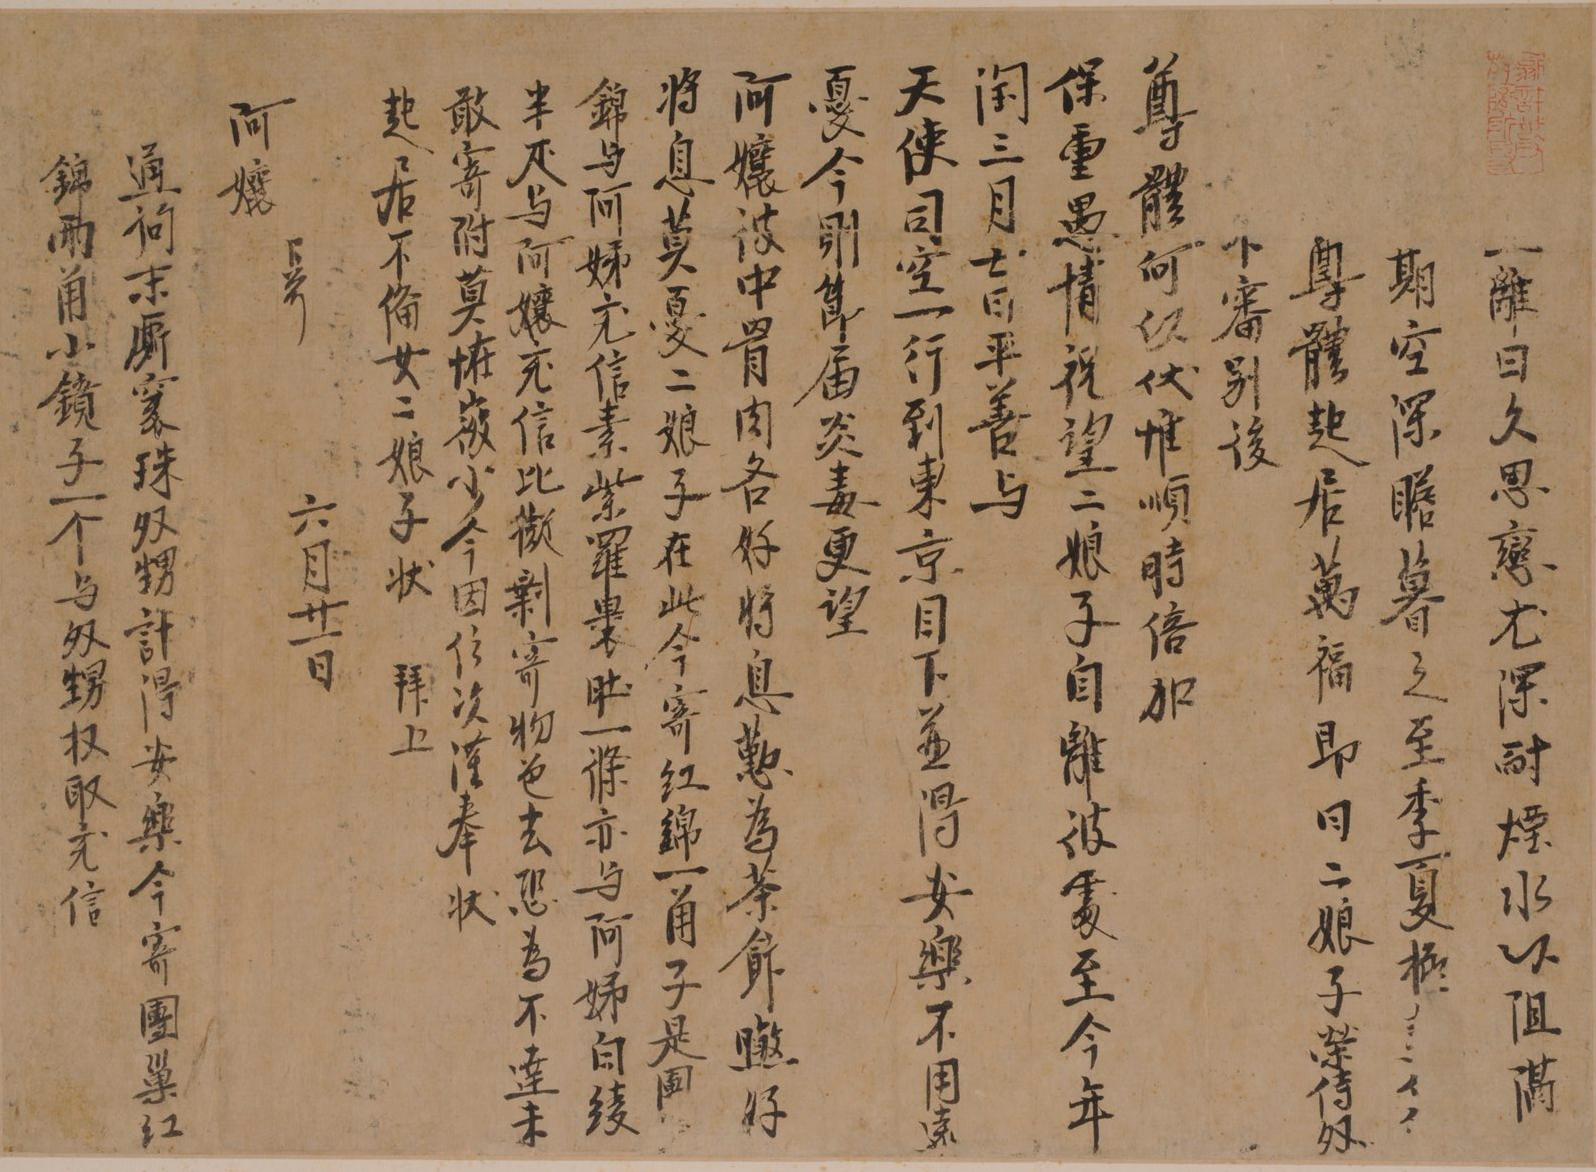 一離日久思戀尤深耐煙水以阻隔
期空深瞻暮之至季夏極
尊體起居萬福即日二娘子榮侍奴
不審別後
尊體何似伏惟順時倍加
保重愚情祝望二娘子自離彼處至今年
閏三月七日平善与
天使司空一行到東京目下並得安樂不用遠
憂今則節届炎毒更望
阿孃彼中骨肉各好將息懃為茶飰曒好
將息莫憂二娘子在此今寄紅錦一角子是團
錦与阿姊充信素紫羅裹肚一條亦与阿姊白綾
半疋与阿孃充信比擬剩寄物色去恐為不達未
敢寄附莫怪微少今因信次謹奉状
起居不備女二娘子状 拜上
六月廿一日
阿孃
通詢末厮裹珠外甥計得安樂今寄團巢紅
錦兩角小鏡子一个与外甥收取充信